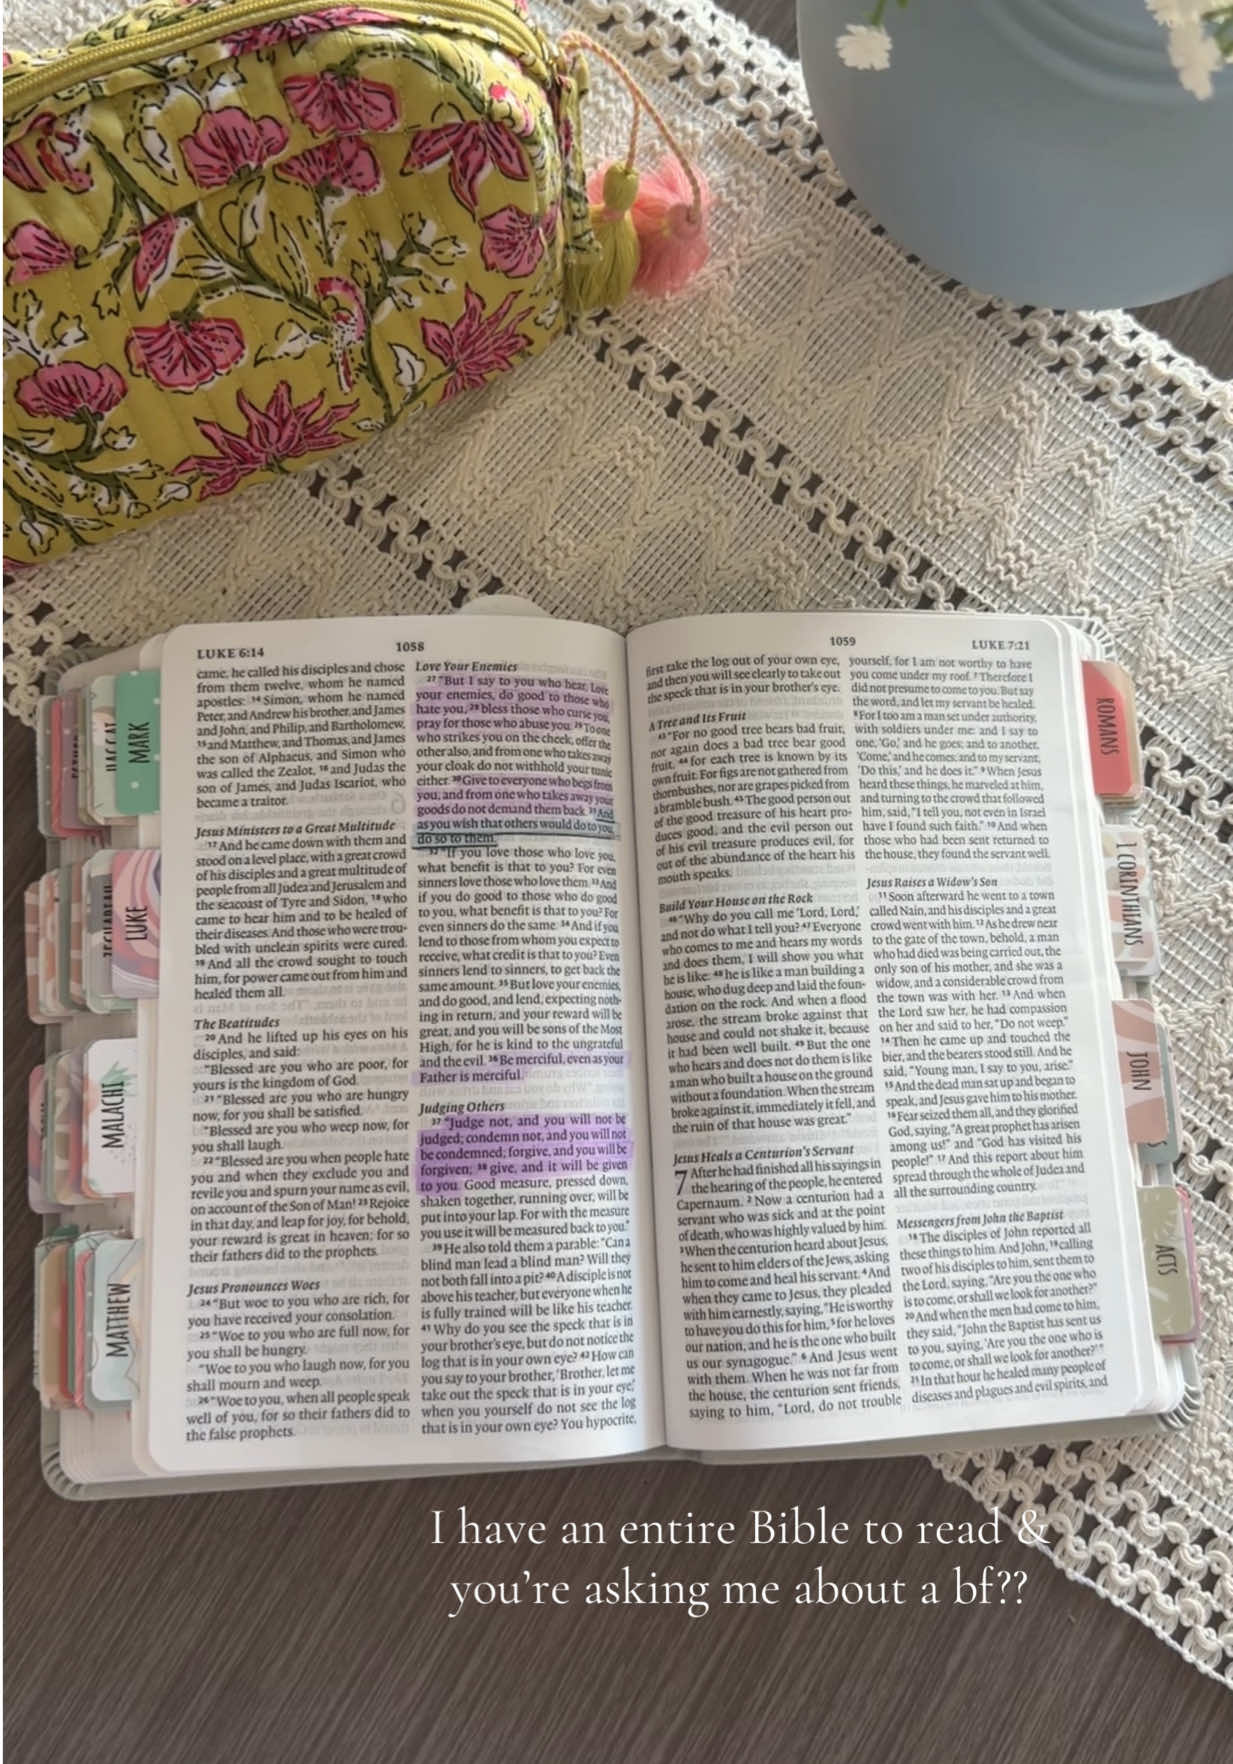 LUKE 6:14
1058
came, he called his disciples and chose
from them twelve, whom he named
apostles: 14 Simon, whom he named
Peter, and Andrew his brother, and James
and John, and Philip, and Bartholomew,
15 and Matthew, and Thomas, and James
the son of Alphaeus, and Simon who
was called the Zealot, 16 and Judas the
son of James, and Judas Iscariot, who
became a traitor.
Jesus Ministers to a Great Multitude
17 And he came down with them and
stood on a level place, with a great crowd
of his disciples and a great multitude of
people from all Judea and Jerusalem and
the seacoast of Tyre and Sidon, 18 who
came to hear him and to be healed of
their diseases. And those who were trou-
bled with unclean spirits were cured.
19 And all the crowd sought to touch
him, for power came out from him and
healed them all.
The Beatitudes
20 And he lifted up his eyes on his
disciples, and said:
"Blessed are you who are poor, for
yours is the kingdom of God.
21 "Blessed are you who are hungry
now, for you shall be satisfied.
"Blessed are you who weep now, for
you shall laugh.
22 "Blessed are you when people hate
you and when they exclude you and
revile you and spurn your name as evil,
on account of the Son of Man! 23 Rejoice
in that day, and leap for joy, for behold,
your reward is great in heaven; for so
their fathers did to the prophets.
Jesus Pronounces Woes
24 "But woe to you who are rich, for
you have received your consolation.
25 "Woe to you who are full now, for
you shall be hungry.
"Woe to you who laugh now, for you
shall mourn and weep.
26 "Woe to you, when all people speak
well of you, for so their fathers did to
the false prophets.
Love Your Enemies
27 "But I say to you who hear, Love
your enemies, do good to those who
hate you, 28 bless those who curse you,
pray for those who abuse you. 29 To one
who strikes you on the cheek, offer the
other also, and from one who takes away
your cloak do not withhold your tunic
either. 30 Give to everyone who begs from
you, and from one who takes away your
goods do not demand them back. 31 And
as you wish that others would do to you,
do so to them.
32 "If you love those who love you,
what benefit is that to you? For even
sinners love those who love them. 33 And
if you do good to those who do good
to you, what benefit is that to you? For
even sinners do the same. 34 And if you
lend to those from whom you expect to
receive, what credit is that to you? Even
sinners lend to sinners, to get back the
same amount. 35 But love your enemies,
and do good, and lend, expecting noth-
ing in return, and your reward will be
great, and you will be sons of the Most
High, for he is kind to the ungrateful
and the evil. 36 Be merciful, even as your
Father is merciful.
Judging Others
37 "Judge not, and you will not be
judged; condemn not, and you will not
be condemned; forgive, and you will be
forgiven; 38 give, and it will be given
to you. Good measure, pressed down,
shaken together, running over, will be
put into your lap. For with the measure
you use it will be measured back to you."
39 He also told them a parable: "Can a
blind man lead a blind man? Will they
not both fall into a pit? 40 A disciple is not
above his teacher, but everyone when he
is fully trained will be like his teacher.
41 Why do you see the speck that is in
your brother's eye, but do not notice the
log that is in your own eye? 42 How can
you say to your brother, 'Brother, let me
take out the speck that is in your eye,'
when you yourself do not see the log
that is in your own eye? You hypocrite,
1059
LUKE 7:21
first take the log out of your own eye,
and then you will see clearly to take out
the speck that is in your brother's eye.
A Tree and Its Fruit
43 "For no good tree bears bad fruit,
nor again does a bad tree bear good
fruit, 44 for each tree is known by its
own fruit. For figs are not gathered from
thornbushes, nor are grapes picked from
a bramble bush. 45 The good person out
of the good treasure of his heart pro-
duces good, and the evil person out
of his evil treasure produces evil, for
out of the abundance of the heart his
mouth speaks.
Build Your House on the Rock
46 "Why do you call me 'Lord, Lord,'
and not do what I tell you? 47 Everyone
who comes to me and hears my words
and does them, I will show you what
he is like: 48 he is like a man building a
house, who dug deep and laid the foun-
dation on the rock. And when a flood
arose, the stream broke against that
house and could not shake it, because
it had been well built. 49 But the one
who hears and does not do them is like
a man who built a house on the ground
without a foundation. When the stream
broke against it, immediately it fell, and
the ruin of that house was great."
Jesus Heals a Centurion's Servant
7 After he had finished all his sayings in
the hearing of the people, he entered
Capernaum. 2 Now a centurion had a
servant who was sick and at the point
of death, who was highly valued by him.
3 When the centurion heard about Jesus,
he sent to him elders of the Jews, asking
him to come and heal his servant. 4 And
when they came to Jesus, they pleaded
with him earnestly, saying, "He is worthy
to have you do this for him, 5 for he loves
our nation, and he is the one who built
us our synagogue." 6 And Jesus went
with them. When he was not far from
the house, the centurion sent friends,
saying to him, "Lord, do not trouble
yourself, for I am not worthy to have
you come under my roof. 7 Therefore I
did not presume to come to you. But say
the word, and let my servant be healed.
8 For I too am a man set under authority,
with soldiers under me: and I say to
one, 'Go,' and he goes; and to another,
'Come,' and he comes; and to my servant,
'Do this,' and he does it." 9 When Jesus
heard these things, he marveled at him,
and turning to the crowd that followed
him, said, "I tell you, not even in Israel
have I found such faith." 10 And when
those who had been sent returned to
the house, they found the servant well.
Jesus Raises a Widow's Son
11 Soon afterward he went to a town
called Nain, and his disciples and a great
crowd went with him. 12 As he drew near
to the gate of the town, behold, a man
who had died was being carried out, the
only son of his mother, and she was a
widow, and a considerable crowd from
the town was with her. 13 And when
the Lord saw her, he had compassion
on her and said to her, "Do not weep."
14 Then he came up and touched the
bier, and the bearers stood still. And he
said, "Young man, I say to you, arise."
15 And the dead man sat up and began to
speak, and Jesus gave him to his mother.
16 Fear seized them all, and they glorified
God, saying, "A great prophet has arisen
among us!" and "God has visited his
people!" 17 And this report about him
spread through the whole of Judea and
all the surrounding country.
Messengers from John the Baptist
18 The disciples of John reported all
these things to him. And John, 19 calling
two of his disciples to him, sent them to
the Lord, saying, "Are you the one who
is to come, or shall we look for another?"
20 And when the men had come to him,
they said, "John the Baptist has sent us
to you, saying, 'Are you the one who is
to come, or shall we look for another?'"
21 In that hour he healed many people of
diseases and plagues and evil spirits, and
MARK
LUKE
MALACHI
MATTHEW
ROMANS
1 CORINTHIANS
JOHN
ACTS
I have an entire Bible to read &
you're asking me about a bf??